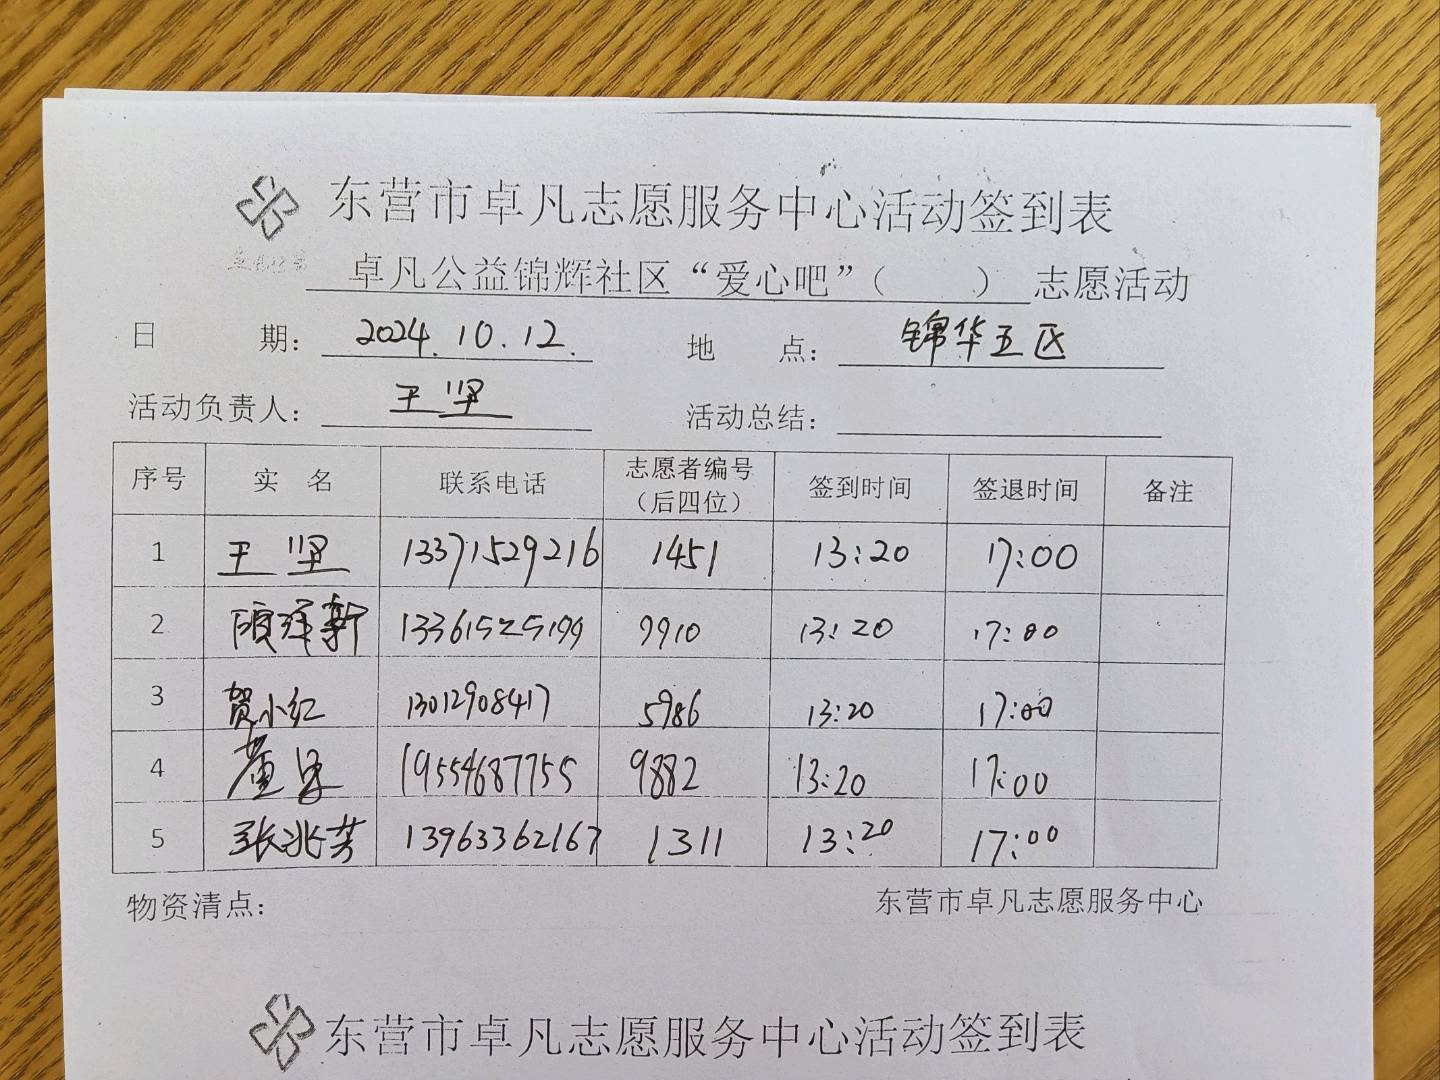 东营市卓凡志愿服务中心活动签到表
卓凡公益锦辉社区“爱心吧”（　　）志愿活动
日　期： 2024.10.12. 地　点： 锦华五区
活动负责人： 王坚 活动总结：
序号 实名 联系电话 志愿者编号（后四位） 签到时间 签退时间 备注
1 王坚 13371529216 1451 13:20 17:00
2 13361525199 9910 13:20 17:00
3 贺小红 13012908417 5986 13:20 17:00
4 董 19554687755 9882 13:20 17:00
5 张兆芳 13963362167 1311 13:20 17:00
物资清点： 东营市卓凡志愿服务中心
东营市卓凡志愿服务中心活动签到表